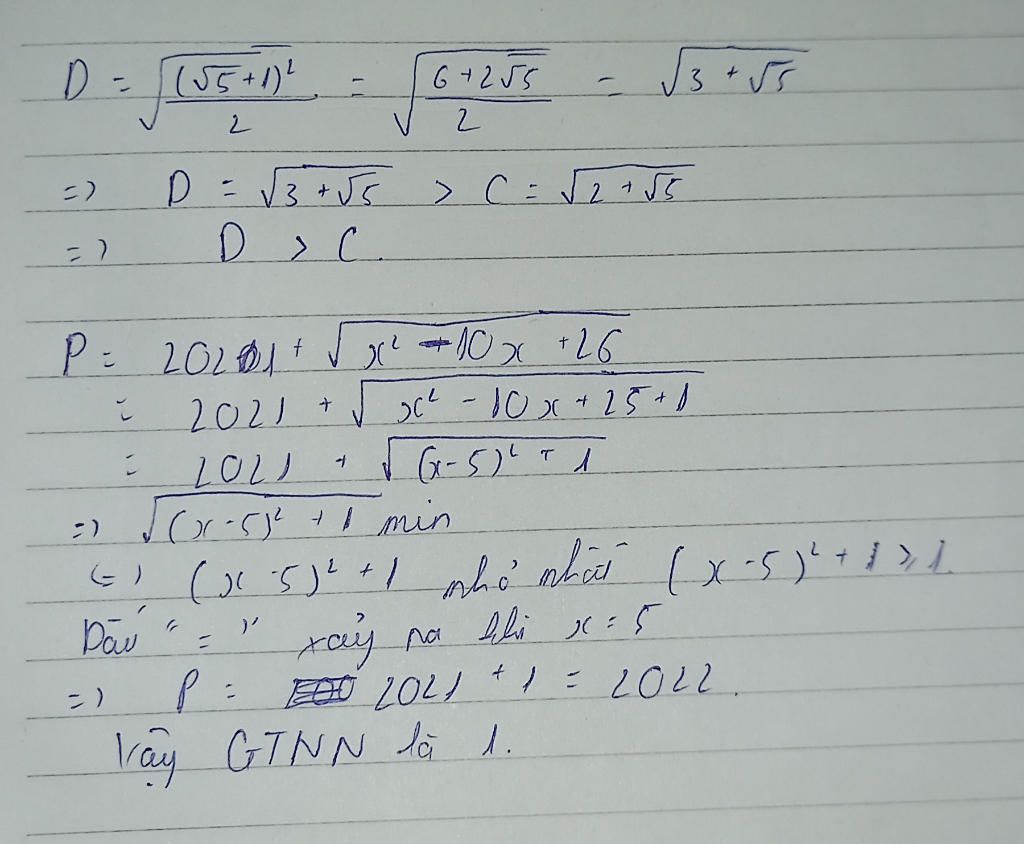 D = √((√5+1)²/2) = √((6+2√5)/2) = √(3+√5)
=> D = √(3+√5) > C = √(2+√5)
=> D > C.
P = 2021 + √(x² - 10x + 26)
= 2021 + √(x² - 10x + 25 + 1)
= 2021 + √((x-5)² + 1)
=> √((x-5)² + 1) min
<=> (x-5)² + 1 nhỏ nhất (x-5)² + 1 ≥ 1.
Dấu "=" xảy ra khi x = 5
=> P = 2021 + 1 = 2022.
Vậy GTNN là 1.